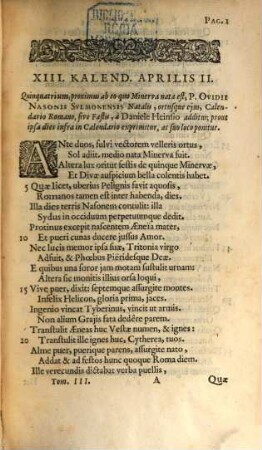 PAG. 1
XIII. KALEND. APRILIS II.
Quinquatrium, proximus ab eo quo Minerva nata est, P. OVIDII
NASONIS SULMONENSIS Natalis, ortusque ejus, Calen-
dario Romano, sive Fastis, à Daniele Heinsio additus; prout
ipsa dies infra in Calendario exprimitur, ac suo loco ponitur.
ANte duos, fulvi vectorem velleris ortus,
Sol adiit. medio nata Minerva fuit.
Altera lux oritur festis de quinque Minervæ,
Et Divæ auspicium bella colentis habet.
5 Quæ licet, uberius Pelignis favit aquosis,
Romanos tamen est inter habenda, dies.
Illa dies terris Nasonem contulit illa
Sydus in occiduum perpetuumque dedit.
Protinus excepit nascentem Æneïa mater,
10 Et pueri cunas ducere jussus Amor.
Nec lucis memor ipsa suæ, Tritonia virgo
Adfuit, & Phœbus Pieridesque Deæ.
E quibus una soror jam notam sustulit urnam:
Altera se monitis illius orsa loqui,
15 Vive puer, dixit: septemque assurgite montes.
Infelix Helicon, gloria prima, jaces.
Ingenio vincat Tyberinus, vincit ut armis.
Non alium Grajis fata dedêre parem.
Transtulit Æneas huc Vestæ numen, & ignes:
20 Transtulit ille ignes huc, Cytherea, tuos.
Alme puer, puerique parens, assurgite nato,
Addat & ad festos hunc quoque Roma diem.
Ille verecundis dictabat verba puellis,
Tom. III. A Quæ